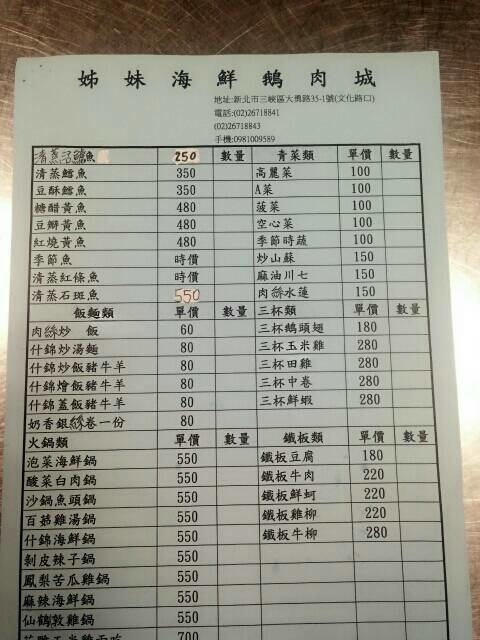 姊妹海鮮鵝肉城
地址:新北市三峽區大勇路35-1號(文化路口)
電話:(02)26718841
(02)26718843
手機:0981009589
清蒸活鱸魚 250 數量 青菜類 單價 數量
清蒸鱈魚 350 高麗菜 100
豆酥鱈魚 350 A菜 100
糖醋黃魚 480 菠菜 100
豆瓣黃魚 480 空心菜 100
紅燒黃魚 480 季節時蔬 100
季節魚 時價 炒山蘇 150
清蒸紅條魚 時價 麻油川七 150
清蒸石斑魚 550 肉絲水蓮 150
飯麵類 單價 數量 三杯類 單價 數量
肉絲炒 飯 60 三杯鵝頭翅 180
什錦炒湯麵 80 三杯玉米雞 280
什錦炒飯豬牛羊 80 三杯田雞 280
什錦燴飯豬牛羊 80 三杯中卷 280
什錦蓋飯豬牛羊 80 三杯鮮蝦 280
奶香銀絲卷一份 80
火鍋類 單價 數量 鐵板類 單價 數量
泡菜海鮮鍋 550 鐵板豆腐 180
酸菜白肉鍋 550 鐵板牛肉 220
沙鍋魚頭鍋 550 鐵板鮮蚵 220
百菇雞湯鍋 550 鐵板雞柳 220
什錦海鮮鍋 550 鐵板牛柳 280
剝皮辣子鍋 550
鳳梨苦瓜雞鍋 550
麻辣海鮮鍋 550
仙鶴敦雞鍋 550
700